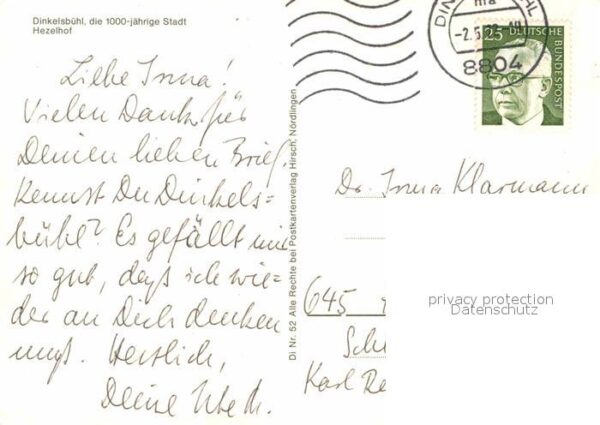 Dinkelsbühl, die 1000-jährige Stadt
Hezelhof
Liebe Irma!
Vielen Dank für
Deinen lieben Brief.
Kennst Du Dinkels=
bühl? Es gefällt mir
so gut, daß ich wie=
der an Dich denken
muß. Herzlich,
Deine
Di Nr. 52 Alle Rechte bei Postkartenverlag Hirsch, Nördlingen
DIN
BÜHL
ma
-2.5.
8804
25
DEUTSCHE
BUNDESPOST
Dr. Irma Klarmann
645
privacy protection
Datenschutz
Karl Re